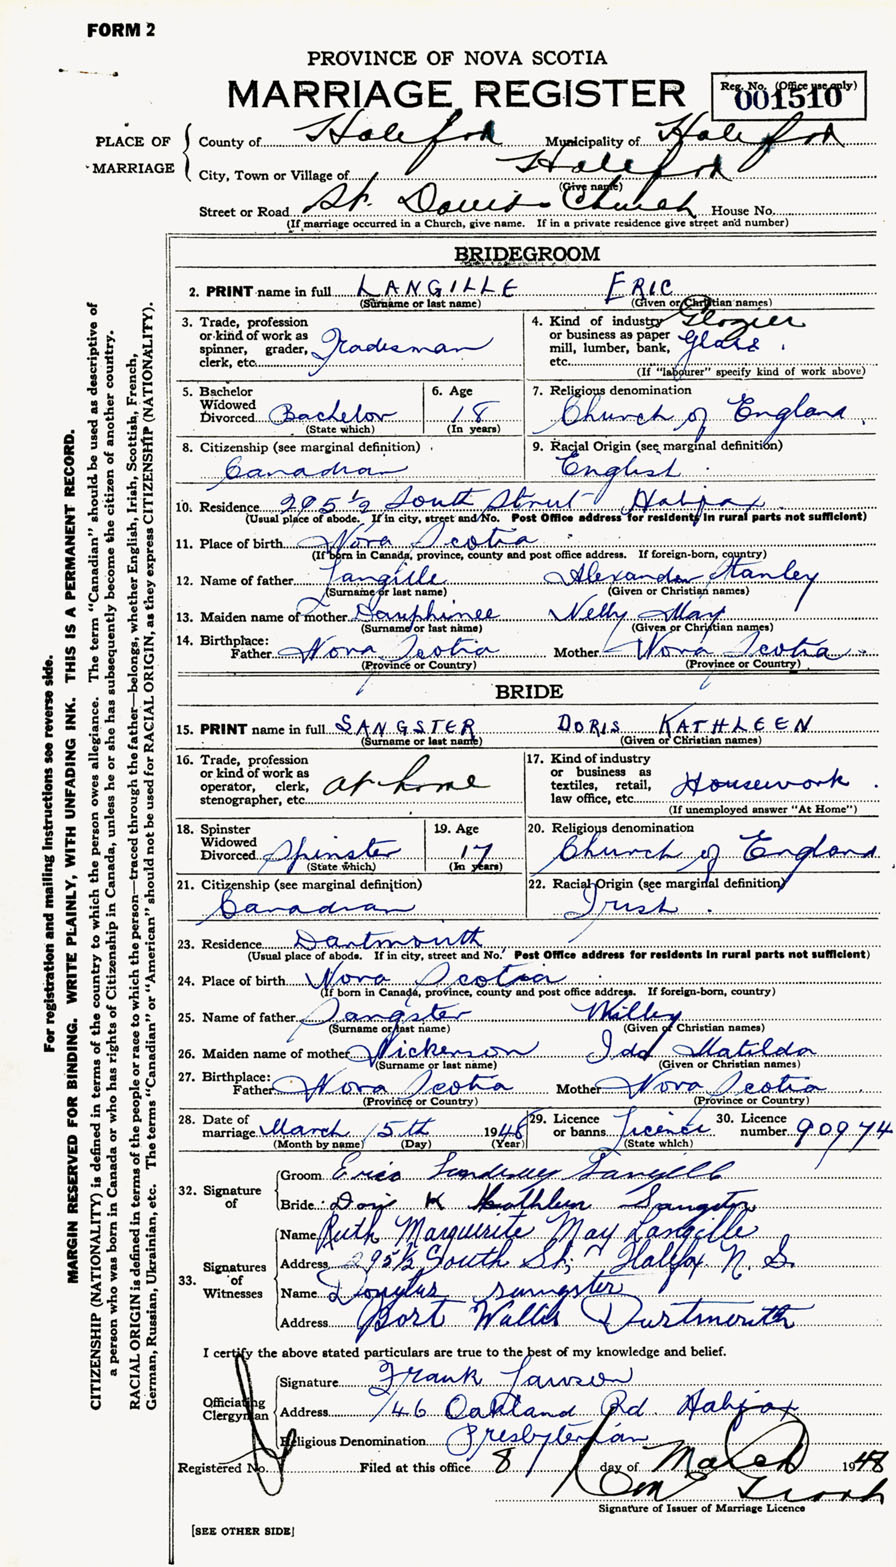 FORM 2
PROVINCE OF NOVA SCOTIA
MARRIAGE REGISTER
Reg. No. (Office use only)
001510
PLACE OF MARRIAGE
County of Halifax Municipality of Halifax
City, Town or Village of Halifax
(Give name)
Street or Road St. Davids Church House No.
(If marriage occurred in a Church, give name. If in a private residence give street and number)
BRIDEGROOM
2. PRINT name in full LANGILLE ERIC
(Surname or last name) (Given or Christian names)
3. Trade, profession or kind of work as spinner, grader, clerk, etc. Tradesman
4. Kind of industry or business as paper mill, lumber, bank, etc. Glazier Glass.
(If "labourer" specify kind of work above)
5. Bachelor Widowed Divorced Bachelor
(State which)
6. Age 18
(In years)
7. Religious denomination
Church of England
8. Citizenship (see marginal definition)
Canadian
9. Racial Origin (see marginal definition)
English.
10. Residence 295½ South Street Halifax
(Usual place of abode. If in city, street and No. Post Office address for residents in rural parts not sufficient)
11. Place of birth Nova Scotia
(If born in Canada, province, county and post office address. If foreign-born, country)
12. Name of father Langille Alexander Stanley
(Surname or last name) (Given or Christian names)
13. Maiden name of mother Dauphinee Nelly May
(Surname or last name) (Given or Christian names)
14. Birthplace: Father Nova Scotia Mother Nova Scotia.
(Province or Country) (Province or Country)
BRIDE
15. PRINT name in full SANGSTER DORIS KATHLEEN
(Surname or last name) (Given or Christian names)
16. Trade, profession or kind of work as operator, clerk, stenographer, etc. at home
17. Kind of industry or business as textiles, retail, law office, etc. Housework.
(If unemployed answer "At Home")
18. Spinster Widowed Divorced Spinster
(State which)
19. Age 17
(In years)
20. Religious denomination
Church of England
21. Citizenship (see marginal definition)
Canadian
22. Racial Origin (see marginal definition)
Irish.
23. Residence Dartmouth
(Usual place of abode. If in city, street and No. Post Office address for residents in rural parts not sufficient)
24. Place of birth Nova Scotia
(If born in Canada, province, county and post office address. If foreign-born, country)
25. Name of father Sangster Willey
(Surname or last name) (Given or Christian names)
26. Maiden name of mother Nickerson Ida Matilda
(Surname or last name) (Given or Christian names)
27. Birthplace: Father Nova Scotia Mother Nova Scotia
(Province or Country) (Province or Country)
28. Date of marriage March 5th 1948
(Month by name) (Day) (Year)
29. Licence or banns Licence
(State which)
30. Licence number 90974
32. Signature of
Groom Langille
Bride Doris K Kathleen Sangster
33. Signatures of Witnesses
Name Ruth Marguerite May Langille
Address 295½ South St, Halifax N. S.
Name Douglas Sangster
Address Port Wallis Dartmouth
I certify the above stated particulars are true to the best of my knowledge and belief.
Officiating Clergyman
Signature Frank Lawson
Address 146 Oakland Rd. Halifax
Religious Denomination Presbyterian
Registered No. Filed at this office 8 day of March 1948
Signature of Issuer of Marriage Licence
[SEE OTHER SIDE]
For registration and mailing instructions see reverse side.
MARGIN RESERVED FOR BINDING. WRITE PLAINLY, WITH UNFADING INK. THIS IS A PERMANENT RECORD.
CITIZENSHIP (NATIONALITY) is defined in terms of the country to which the person owes allegiance. The term "Canadian" should be used as descriptive of
a person who was born in Canada or who has rights of Citizenship in Canada, unless he or she has subsequently become the citizen of another country.
RACIAL ORIGIN is defined in terms of the people or race to which the person—traced through the father—belongs, whether English, Irish, Scottish, French,
German, Russian, Ukrainian, etc. The terms "Canadian" or "American" should not be used for RACIAL ORIGIN, as they express CITIZENSHIP (NATIONALITY).